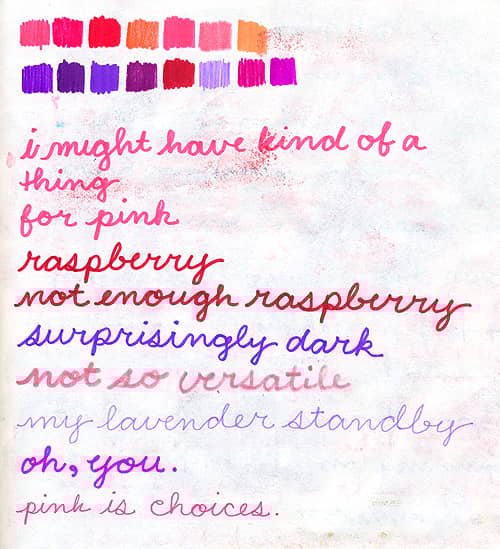 i might have kind of a
thing
for pink
raspberry
not enough raspberry
surprisingly dark
not so versatile
my lavender standby
oh, you.
pink is choices.